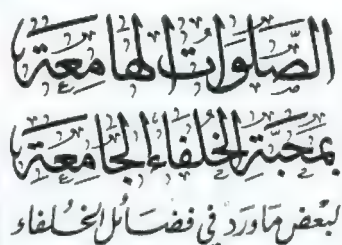 الصَّلَوَاتُ الهَامِعَة
بِمَحَبَّةِ الخُلَفَاءِ الجَامِعَة
لبَعْض مَا وَرَدَ في فَضَائل الخُلفاء